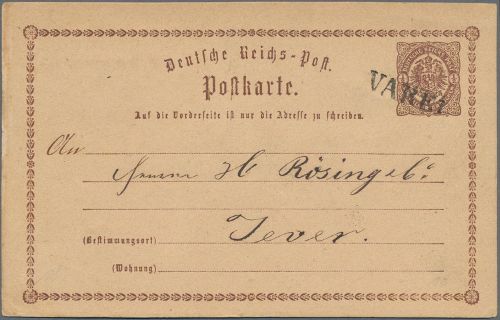 Deutsche Reichs-Post.
Postkarte.
VAREL
Auf die Vorderseite ist nur die Adresse zu schreiben.
An
Herrn H Rösing
Jever.
(Bestimmungsort)
(Wohnung)